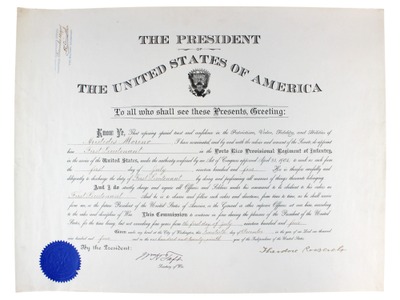 THE PRESIDENT
OF
THE UNITED STATES OF AMERICA
To all who shall see these Presents, Greeting:
Know Ye, That reposing special trust and confidence in the Patriotism, Valor, Fidelity, and Abilities of
Moreno I have nominated, and by and with the advice and consent of the Senate do appoint
him First Lieutenant in the Porto Rico Provisional Regiment of Infantry,
in the service of the United States, under the authority conferred by an Act of Congress approved April 23, 1904, to rank as such from the
first day of July nineteen hundred and five. He is therefore carefully and
diligently to discharge the duty of First Lieutenant by doing and performing all manner of things thereunto belonging.
And I do strictly charge and require all Officers and Soldiers under his command to be obedient to his orders as
First Lieutenant. And he is to observe and follow such orders and directions, from time to time, as he shall receive
from me, or the future President of the United States of America, or the General or other superior Officers set over him, according
to the rules and discipline of War. This Commission to continue in force during the pleasure of the President of the United
States, for the time being,
Given under my hand at the City of Washington, the day of in the year of our Lord one thousand
nine hundred and five and in the one hundred and year of the Independence of the United States.
By the President:
Theodore Roosevelt
Secretary of War.